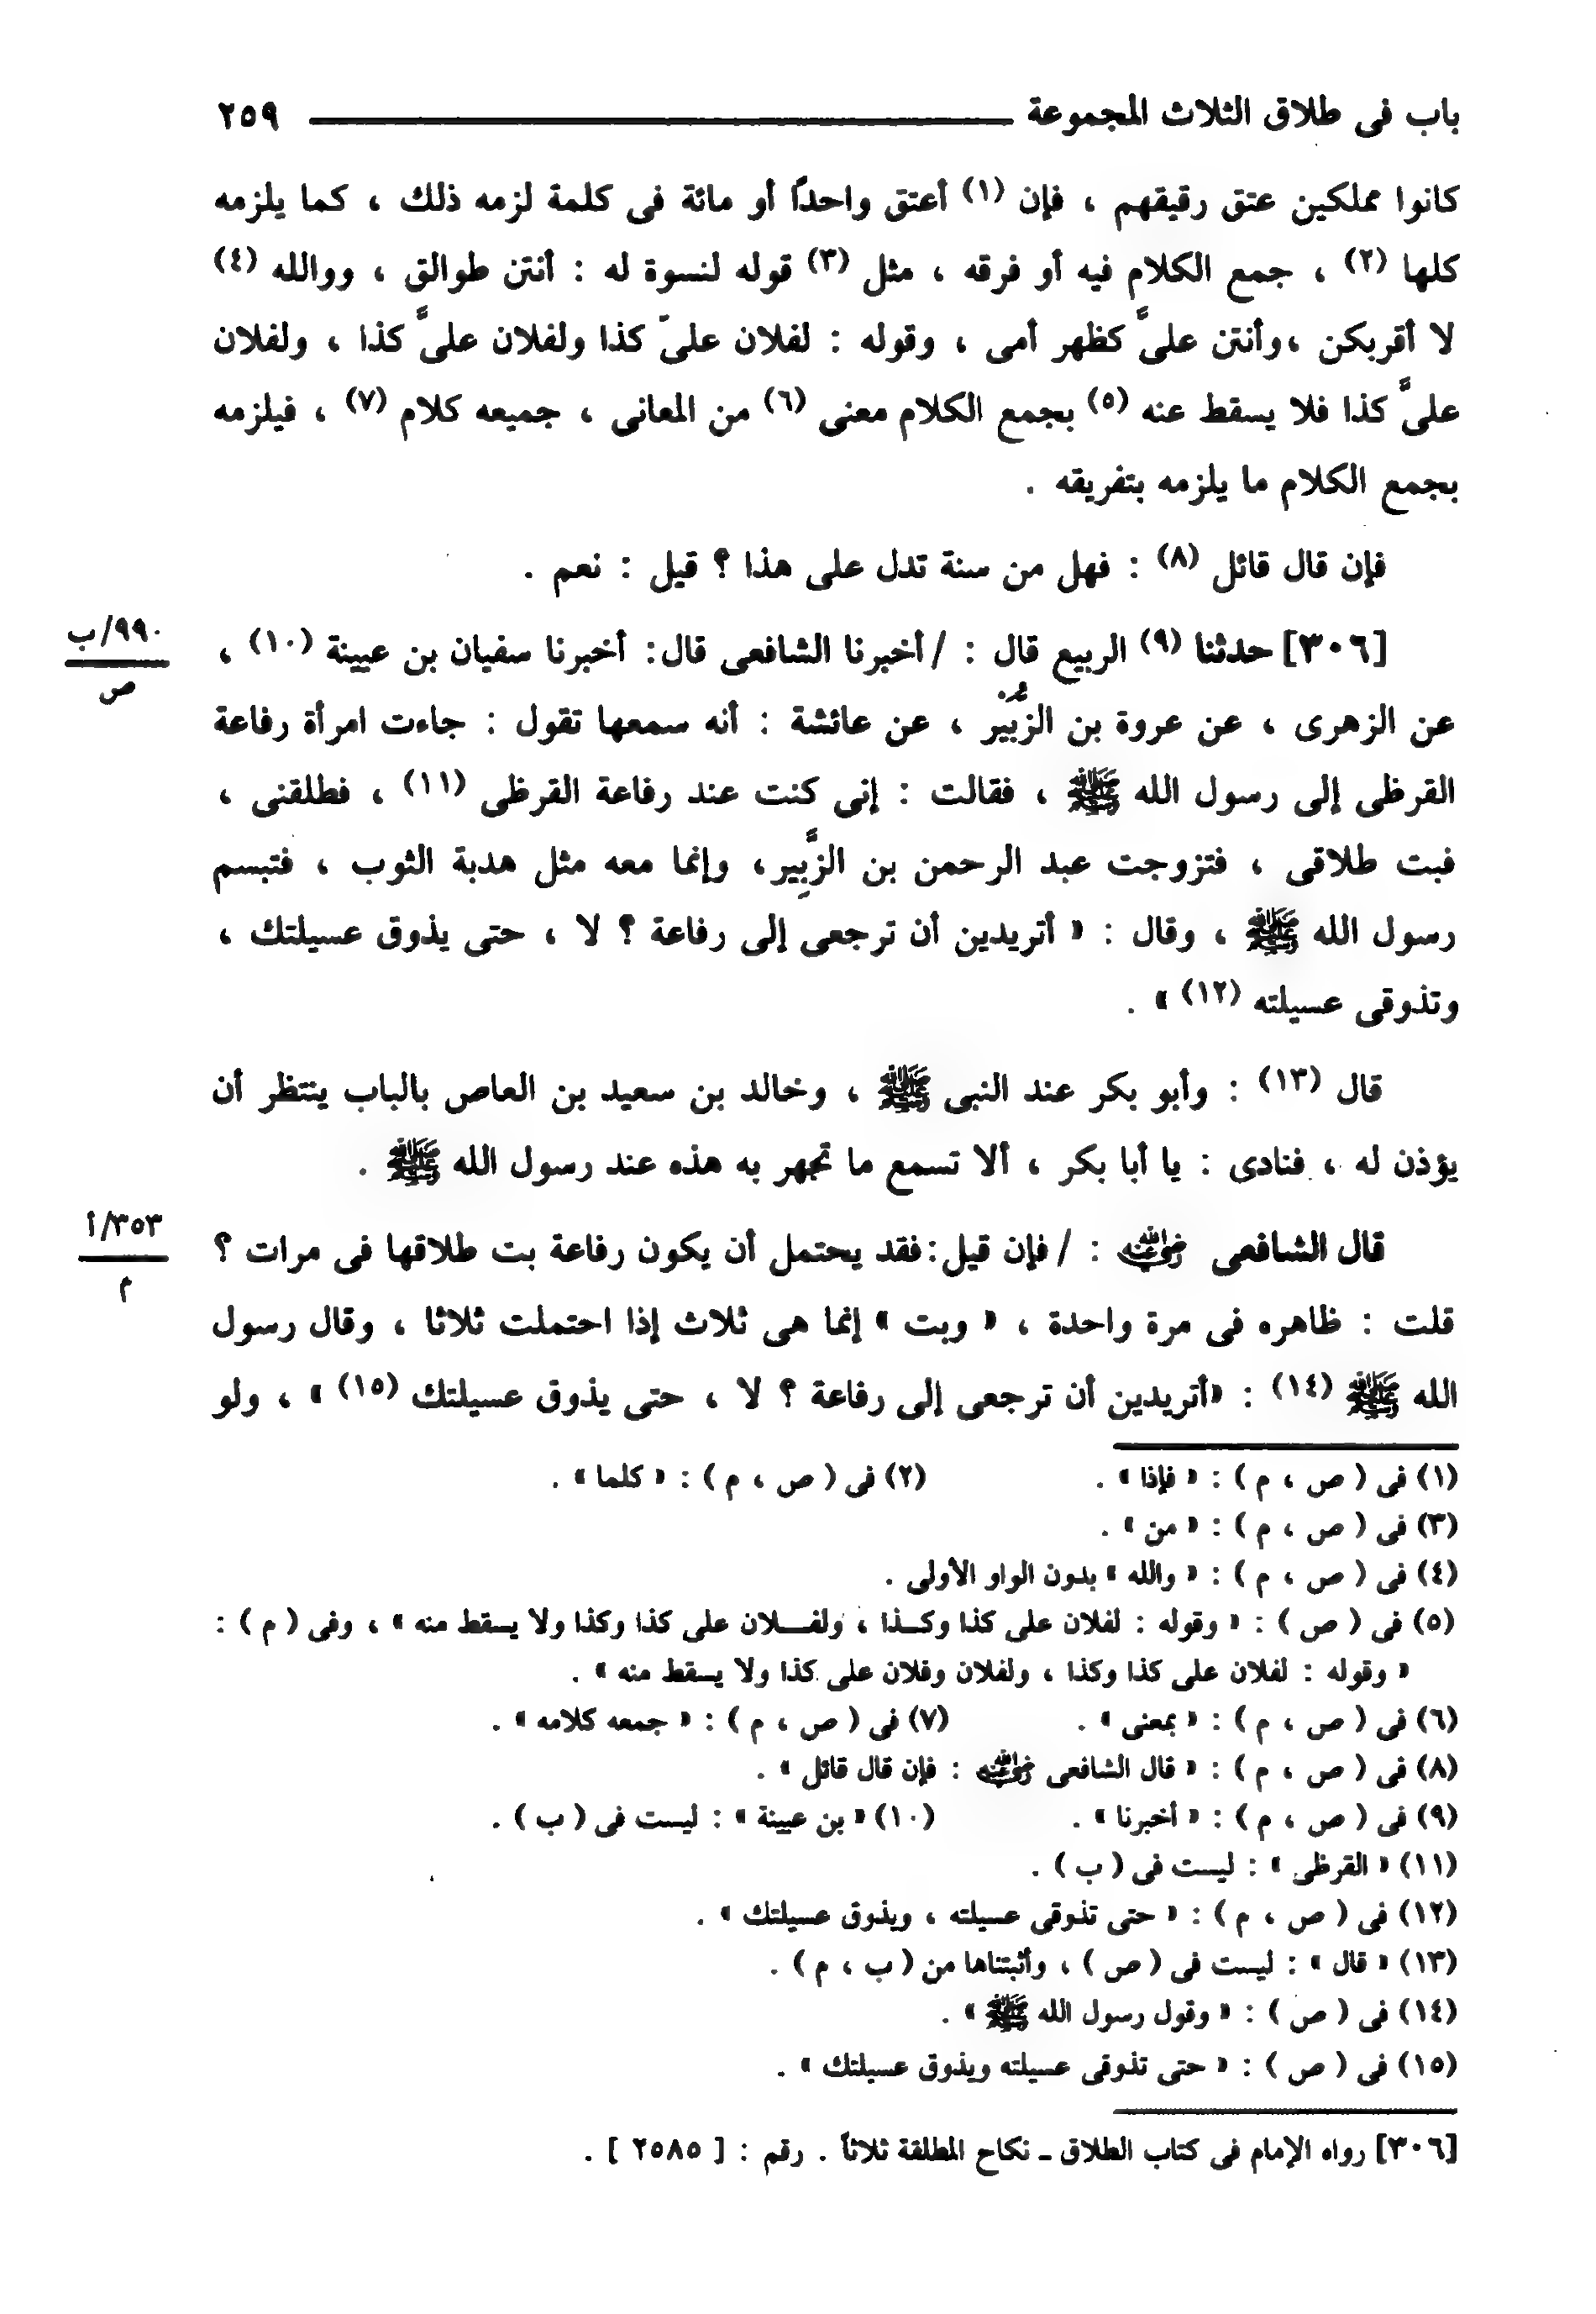 باب فى طلاق الثلاث المجموعة ٢٥٩
كانوا مملكين عتق رقيقهم ، فإن (١) أعتق واحدًا أو مائة فى كلمة لزمه ذلك ، كما يلزمه
كلها (٢) ، جمع الكلام فيه أو فرقه ، مثل (٣) قوله لنسوة له : أنتن طوالق ، ووالله (٤)
لا أقربكن ،وأنتن علىَّ كظهر أمى ، وقوله : لفلان علىّ كذا ولفلان علىَّ كذا ، ولفلان
علىَّ كذا فلا يسقط عنه (٥) بجمع الكلام معنى (٦) من المعانى ، جميعه كلام (٧) ، فيلزمه
بجمع الكلام ما يلزمه بتفريقه .
فإن قال قائل (٨) : فهل من سنة تدل على هذا ؟ قيل : نعم .
[٣٠٦] حدثنا (٩) الربيع قال : / أخبرنا الشافعى قال: أخبرنا سفيان بن عيينة (١٠) ،
٩٩٠/ب
ص
عن الزهرى ، عن عروة بن الزُّبَير ، عن عائشة : أنه سمعها تقول : جاءت امرأة رفاعة
القرظى إلى رسول الله ﷺ ، فقالت : إنى كنت عند رفاعة القرظى (١١) ، فطلقنى ،
فبت طلاقى ، فتزوجت عبد الرحمن بن الزَّبِير، وإنما معه مثل هدبة الثوب ، فتبسم
رسول الله ﷺ ، وقال : « أتريدين أن ترجعى إلى رفاعة ؟ لا ، حتى يذوق عسيلتك ،
وتذوقى عسيلته (١٢) » .
قال (١٣) : وأبو بكر عند النبى ﷺ ، وخالد بن سعيد بن العاص بالباب ينتظر أن
يؤذن له ، فنادى : يا أبا بكر ، ألا تسمع ما تجهر به هذه عند رسول الله ﷺ .
قال الشافعى رضي الله عنه : / فإن قيل: فقد يحتمل أن يكون رفاعة بت طلاقها فى مرات ؟
٣٥٣/أ
م
قلت : ظاهره فى مرة واحدة ، « وبت » إنما هى ثلاث إذا احتملت ثلاثا ، وقال رسول
الله ﷺ (١٤) : «أتريدين أن ترجعى إلى رفاعة ؟ لا ، حتى يذوق عسيلتك (١٥) » ، ولو
(١) فى ( ص ، م ) : « فإذا » . (٢) فى ( ص ، م ) : « كلما » .
(٣) فى ( ص ، م ) : « من » .
(٤) فى ( ص ، م ) : « والله » بدون الواو الأولى .
(٥) فى ( ص ) : « وقوله : لفلان على كذا وكـذا ، ولفـــلان على كذا وكذا ولا يسقط منه » ، وفى ( م ) :
« وقوله : لفلان على كذا وكذا ، ولفلان وفلان على كذا ولا يسقط منه » .
(٦) فى ( ص ، م ) : « بمعنى » . (٧) فى ( ص ، م ) : « جمعه كلامه » .
(٨) فى ( ص ، م ) : « قال الشافعى رضي الله عنه : فإن قال قائل » .
(٩) فى ( ص ، م ) : « أخبرنا » . (١٠) « بن عيينة » : ليست فى ( ب ) .
(١١) « القرظى » : ليست فى ( ب ) .
(١٢) فى ( ص ، م ) : « حتى تذوقى عسيلته ، ويذوق عسيلتك » .
(١٣) « قال » : ليست فى ( ص ) ، وأثبتناها من ( ب ، م ) .
(١٤) فى ( ص ) : « وقول رسول الله ﷺ » .
(١٥) فى ( ص ) : « حتى تذوقى عسيلته ويذوق عسيلتك » .
[٣٠٦] رواه الإمام فى كتاب الطلاق ـ نكاح المطلقة ثلاثاً . رقم : [ ٢٥٨٥ ] .